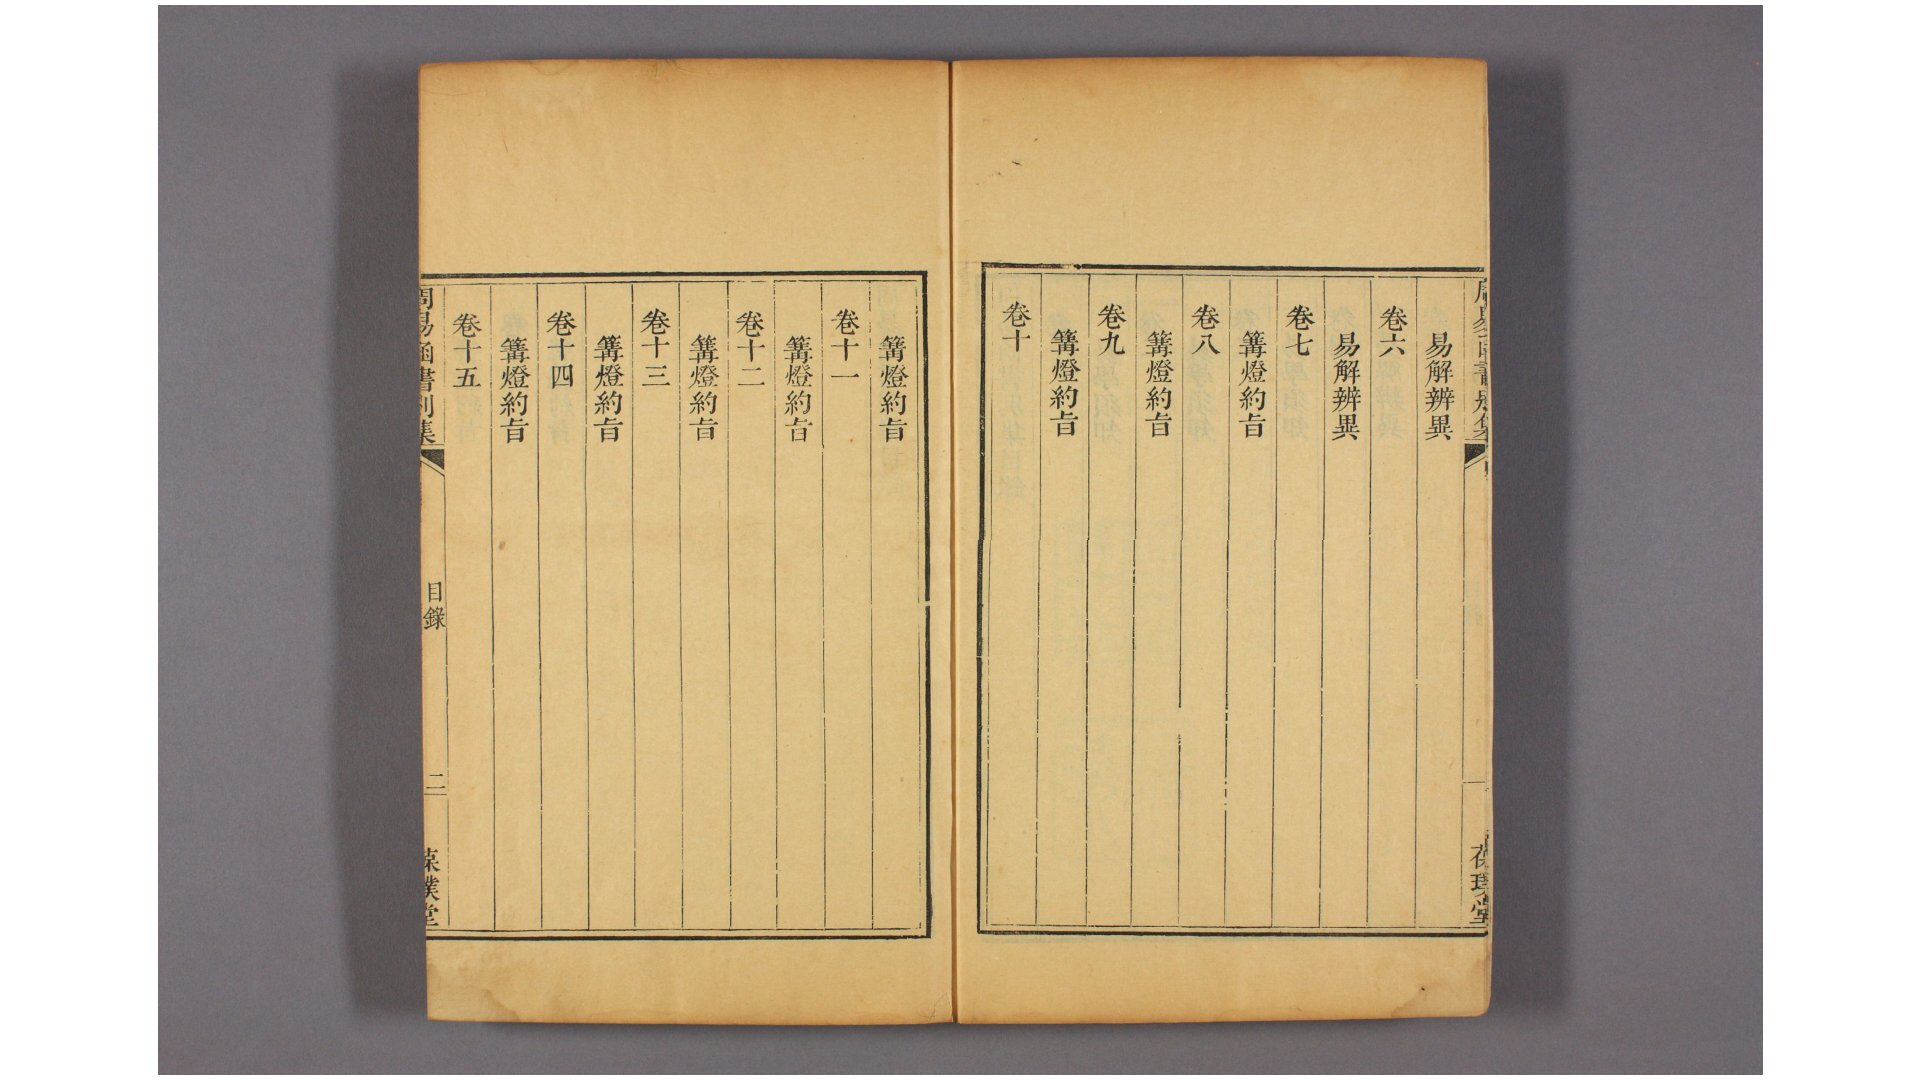 易解辨異
卷六
易解辨異
卷七
篝燈約旨
卷八
篝燈約旨
卷九
篝燈約旨
卷十
篝燈約旨
卷十一
篝燈約旨
卷十二
篝燈約旨
卷十三
篝燈約旨
卷十四
篝燈約旨
卷十五
周易函書別集
目錄
二
葆璞堂